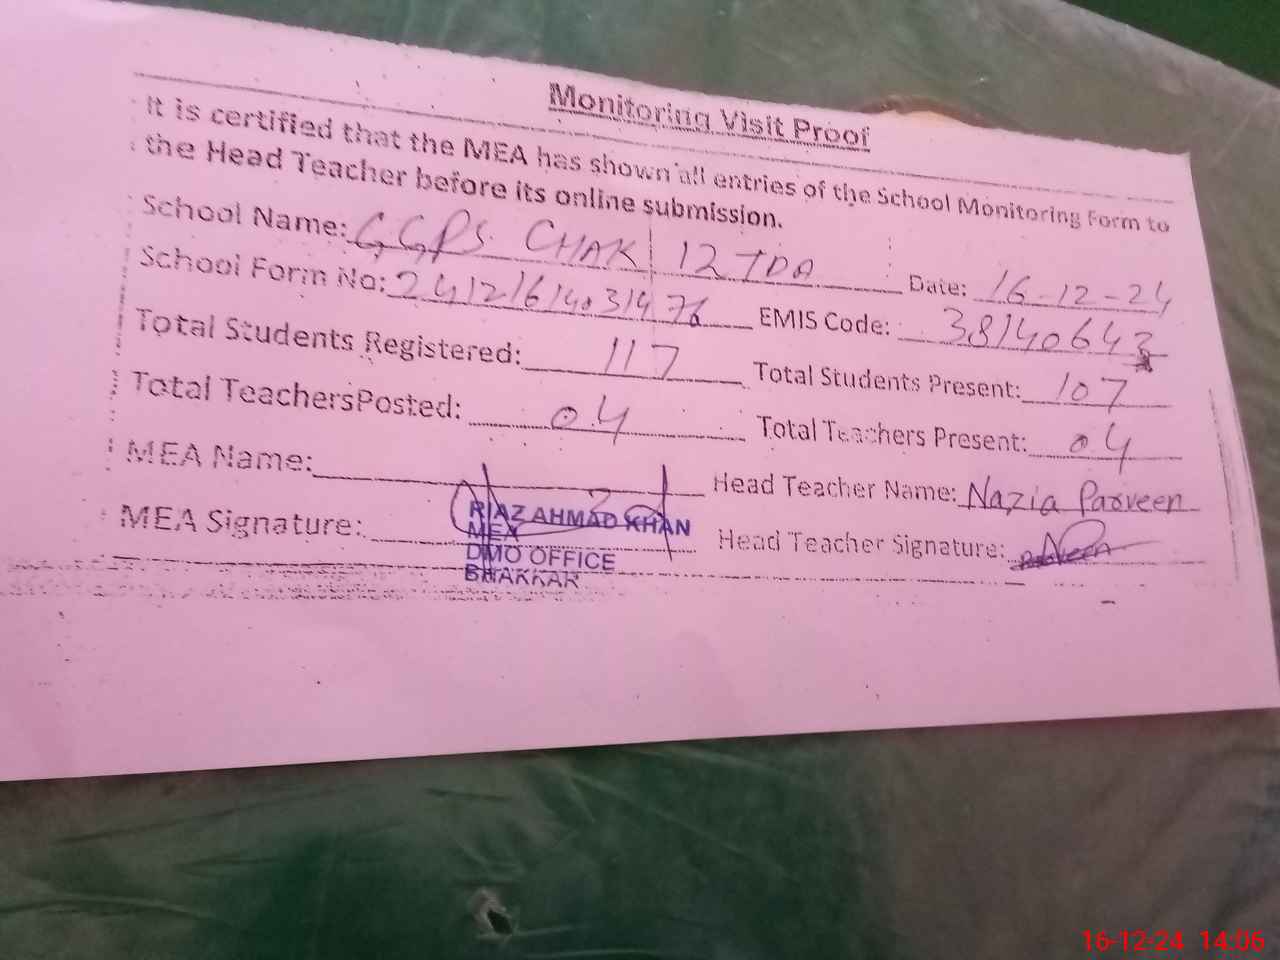 Monitoring Visit Proof
It is certified that the MEA has shown all entries of the School Monitoring Form to
the Head Teacher before its online submission.
School Name: GGPS. CHAK 12 TDA Date: 16-12-24
School Form No: EMIS Code: 38140643
Total Students Registered: 117 Total Students Present: 107
Total TeachersPosted: 04 Total Teachers Present: 04
MEA Name: Head Teacher Name: Nazia Parveen
MEA Signature: RIAZ AHMAD KHAN Head Teacher Signature:
MEA
DMO OFFICE
BHAKKAR
16-12-24 14:06